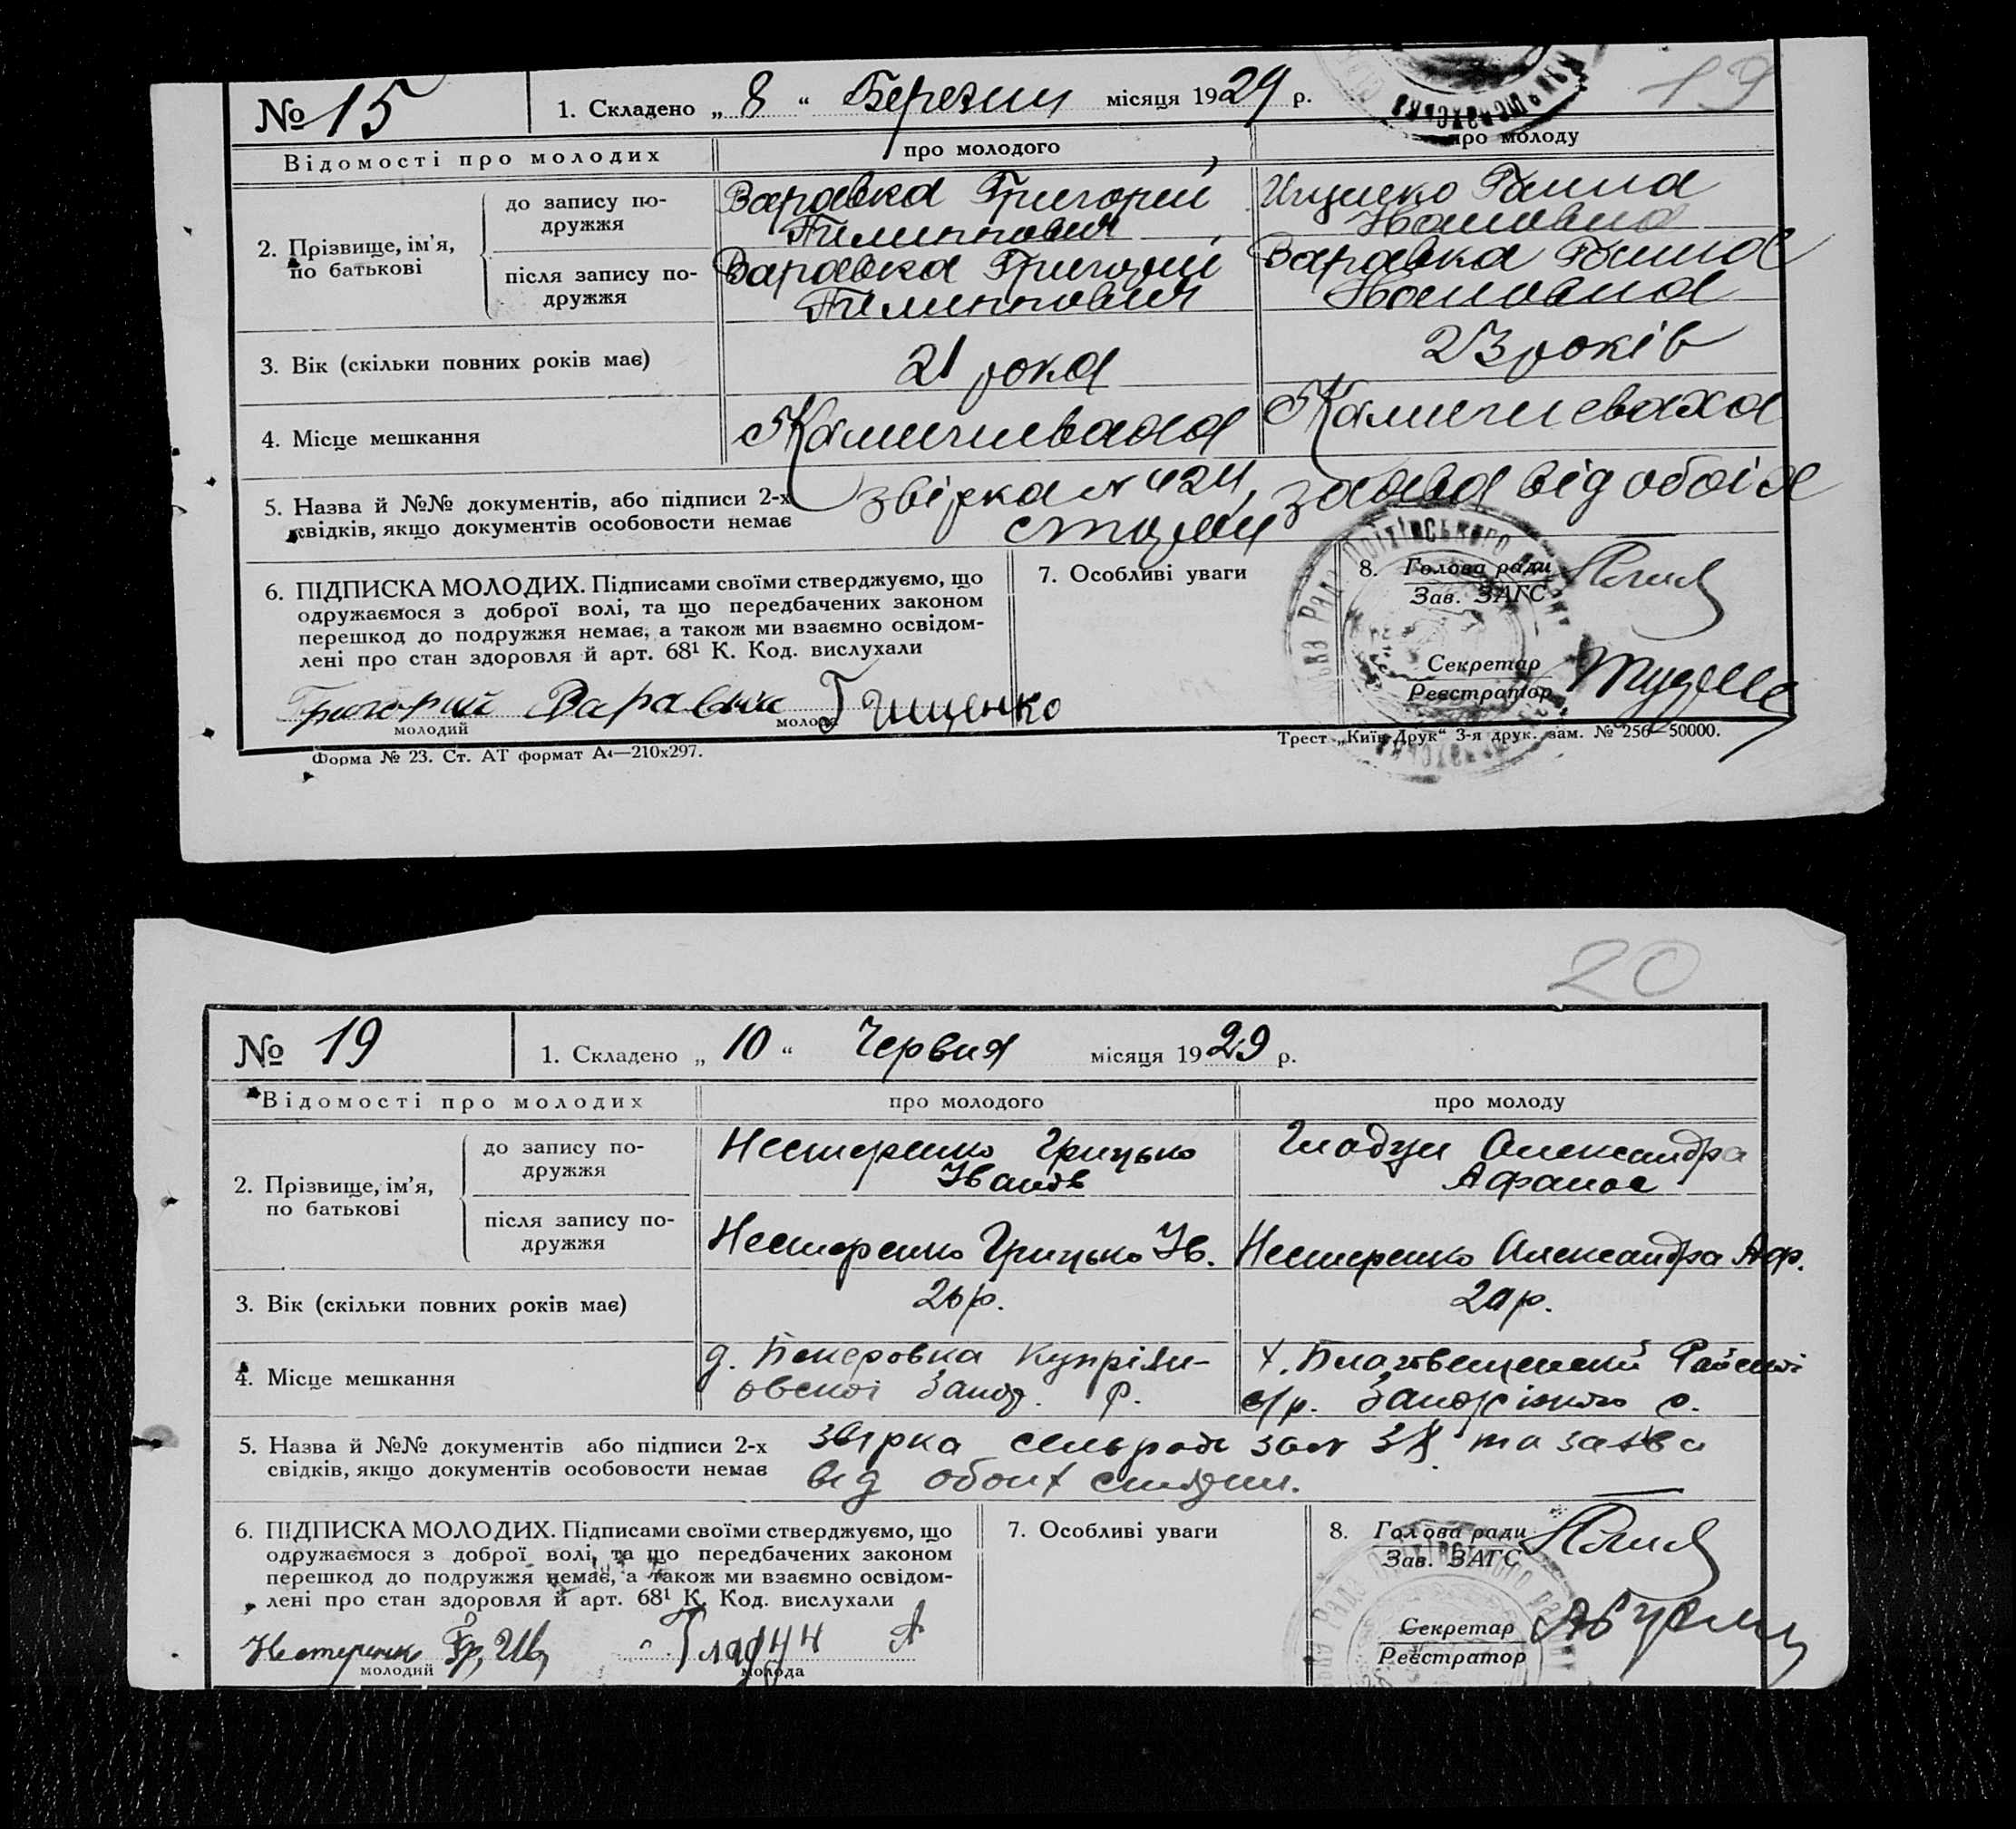 19
№ 15
1. Складено „ 8 “ Березня місяця 1929 р.
Відомості про молодих
про молодого
про молоду
2. Прізвище, ім’я, по батькові
до запису по-
дружжя
Варавка Григорій
Пилиппович
Ищенко Ганна
Ивановна
після запису по-
дружжя
Варавка Григорій
Пилиппович
Варавка Ганна
Ивановна
3. Вік (скільки повних років має)
21 рока
23 років
4. Місце мешкання
Камишеваха
Камишеваха
5. Назва й №№ документів, або підписи 2-х
свідків, якщо документів особовости немає
звірка № 424, заява від обоіх
сторон
6. ПІДПИСКА МОЛОДИХ. Підписами своїми стверджуємо, що
одружаємося з доброї волі, та що передбачених законом
перешкод до подружжя немає, а також ми взаємно освідом-
лені про стан здоровля й арт. 68¹ К. Код. вислухали
Григорий Варавка
молодий
Г Ищенко
молода
7. Особливі уваги
8. Голова ради
Зав. ЗАГС
Секретар
Реєстратор
Форма № 23. Ст. АТ формат А₄—210х297.
Трест „Київ-Друк“ 3-я друк. зам. № 256—50000.
20
№ 19
1. Складено „ 10 “ Червня місяця 1929 р.
Відомості про молодих
про молодого
про молоду
2. Прізвище, ім’я,
по батькові
до запису по-
дружжя
Нестеренко Грицько
Іванов
Гладун Александра
Афанас
після запису по-
дружжя
Нестеренко Грицько Ів.
Нестеренко Александра Аф.
3. Вік (скільки повних років має)
26 р.
4. Місце мешкання
д. Бекеровка Купріян-
овскоі Запор. р.
х. Благовещенский
с/р. Запоріжжо о.
5. Назва й №№ документів або підписи 2-х
свідків, якщо документів особовости немає
звірка сельради за № та заява
від обоих сторон.
6. ПІДПИСКА МОЛОДИХ. Підписами своїми стверджуємо, що
одружаємося з доброї волі, та що передбачених законом
перешкод до подружжя немає, а також ми взаємно освідом-
лені про стан здоровля й арт. 68¹ К. Код. вислухали
Нестеренк Гр, Ив,
молодий
Гладун А
молода
7. Особливі уваги
8. Голова ради
Зав. ЗАГС
Секретар
Реєстратор